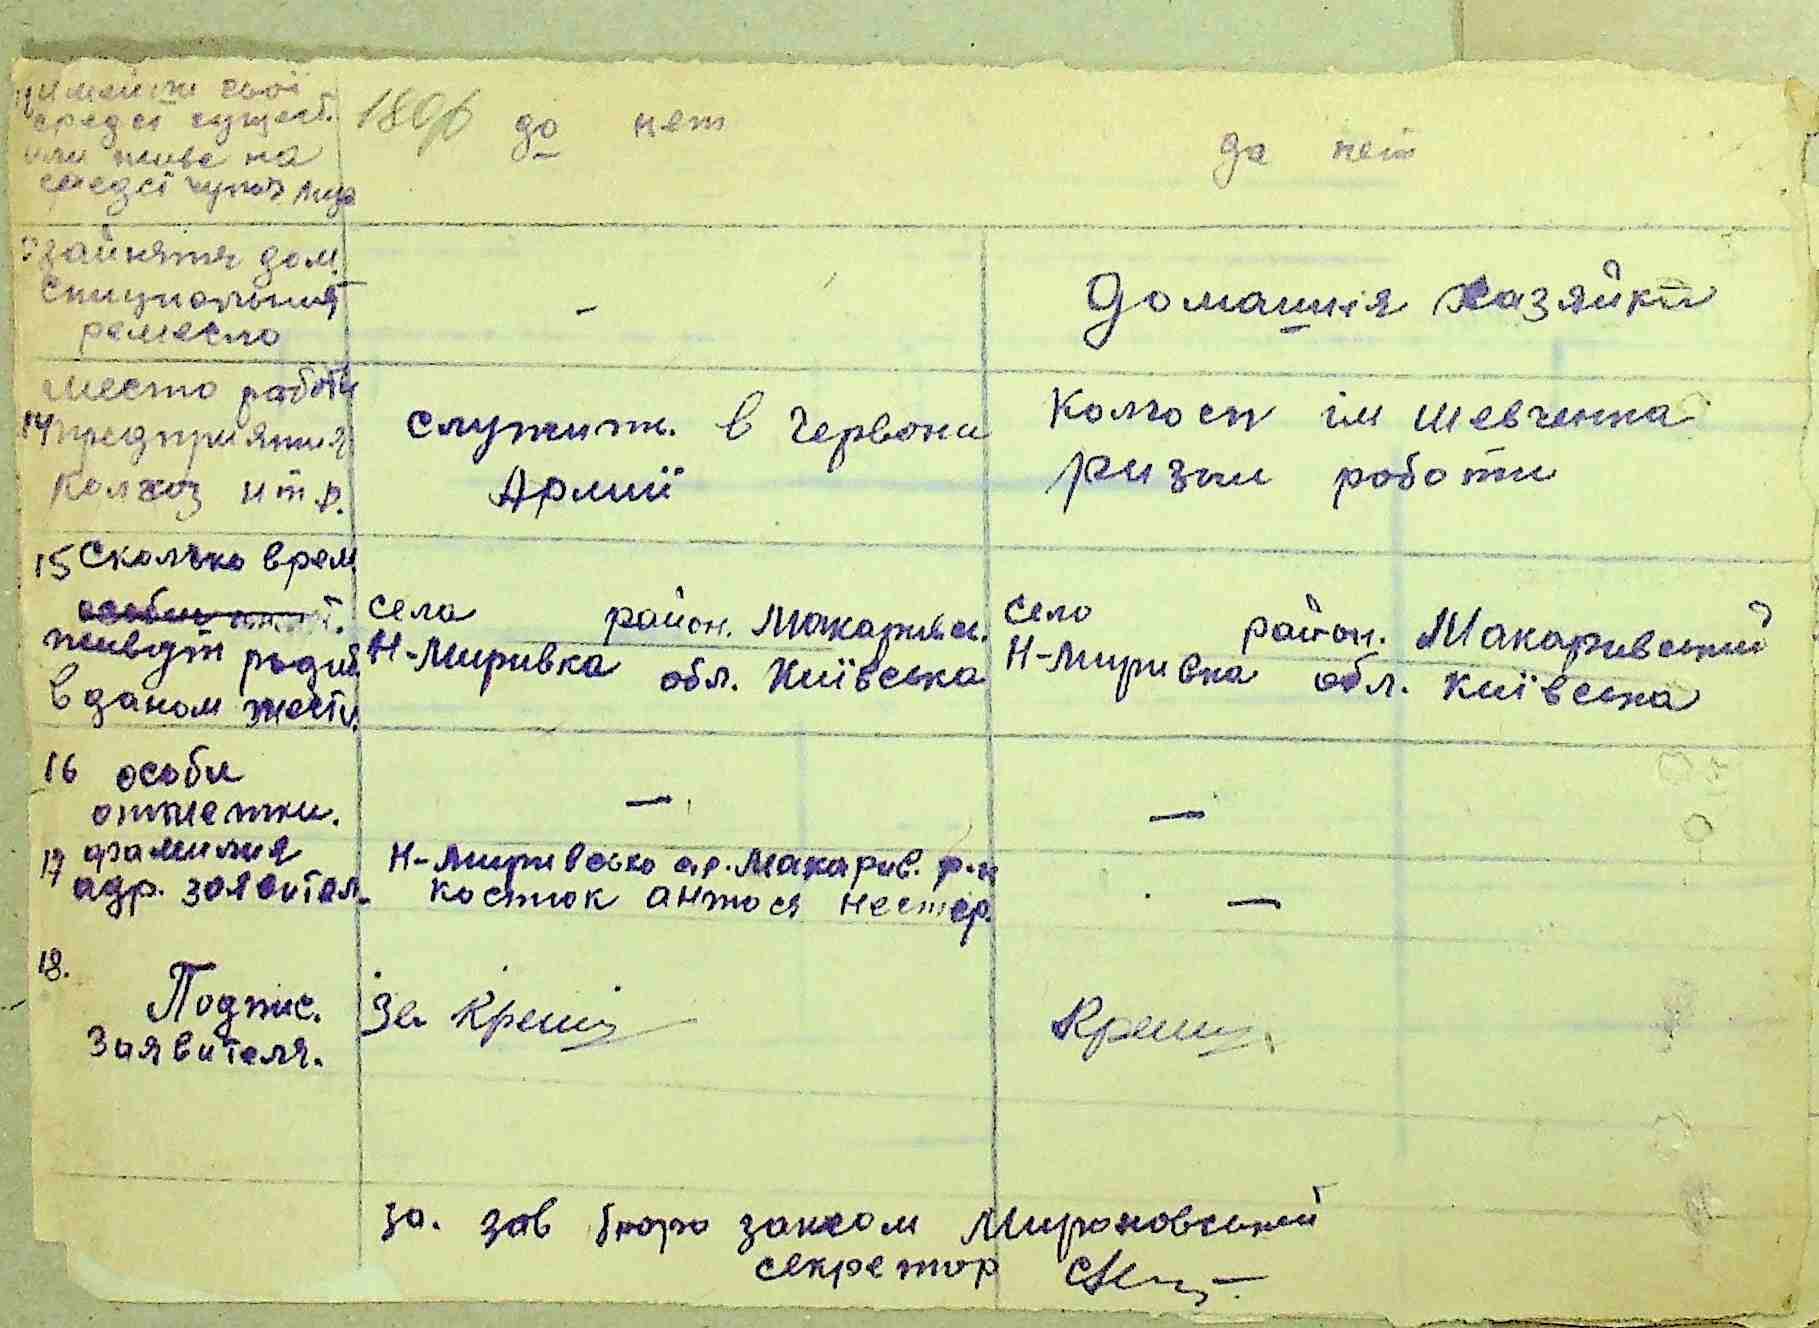 имеит свої
средст сущест.
или живе на
средсі чужих лиц
180р до нет
да нет
Зайняття дом.
специальния
ремесло
–
Домашнія хазяйка
Место работи
14 предприятия
Колхоз и т.д.
служить в Червони
Армії
Колгосп ім Шевченка
ризни роботи
15 Сколько врем
живут родит.
в даном месті.
село район. Макаривсь.
Н-Миривка обл. Київська
село район. Макаривський
Н-Миривка обл. Київська
16 особи
отметки.
—
—
17 фамилия
адр. заявител.
Н-Миривсько с.р. Макарив. р-н
Костюк Антося Нестер.
—
18.
Подпис.
Заявителя.
За
за. зав бюро загсом Мироновський
секретар